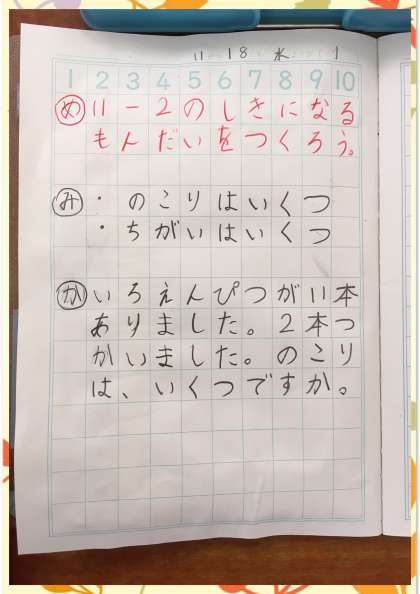 11 18 水 1
1 2 3 4 5 6 7 8 9 10
め 11－2のしきになる
もんだいをつくろう。
み ・のこりはいくつ
・ちがいはいくつ
か いろえんぴつが11本
ありました。2本つ
かいました。のこり
は、いくつですか。